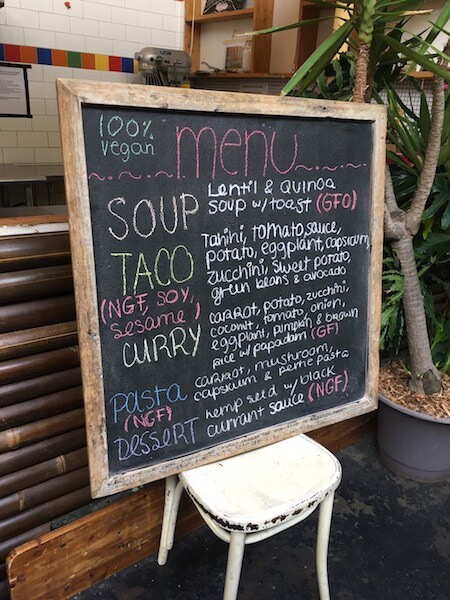 100%
vegan
menu
SOUP
Lentil & Quinoa
soup w/toast (GFO)
TACO
(NGF, SOY,
sesame)
Tahini, tomato sauce,
potato, eggplant, capsicum,
zucchini, sweet potato
green beans & avocado
CURRY
carrot, potato, zucchini,
coconut, tomato, onion,
eggplant, pumpkin & brown
rice w/ papadam (GF)
Pasta
(NGF)
carrot, mushroom,
capsicum & penne pasta
DESSERT
hemp seed w/ black
currant sauce (NGF)